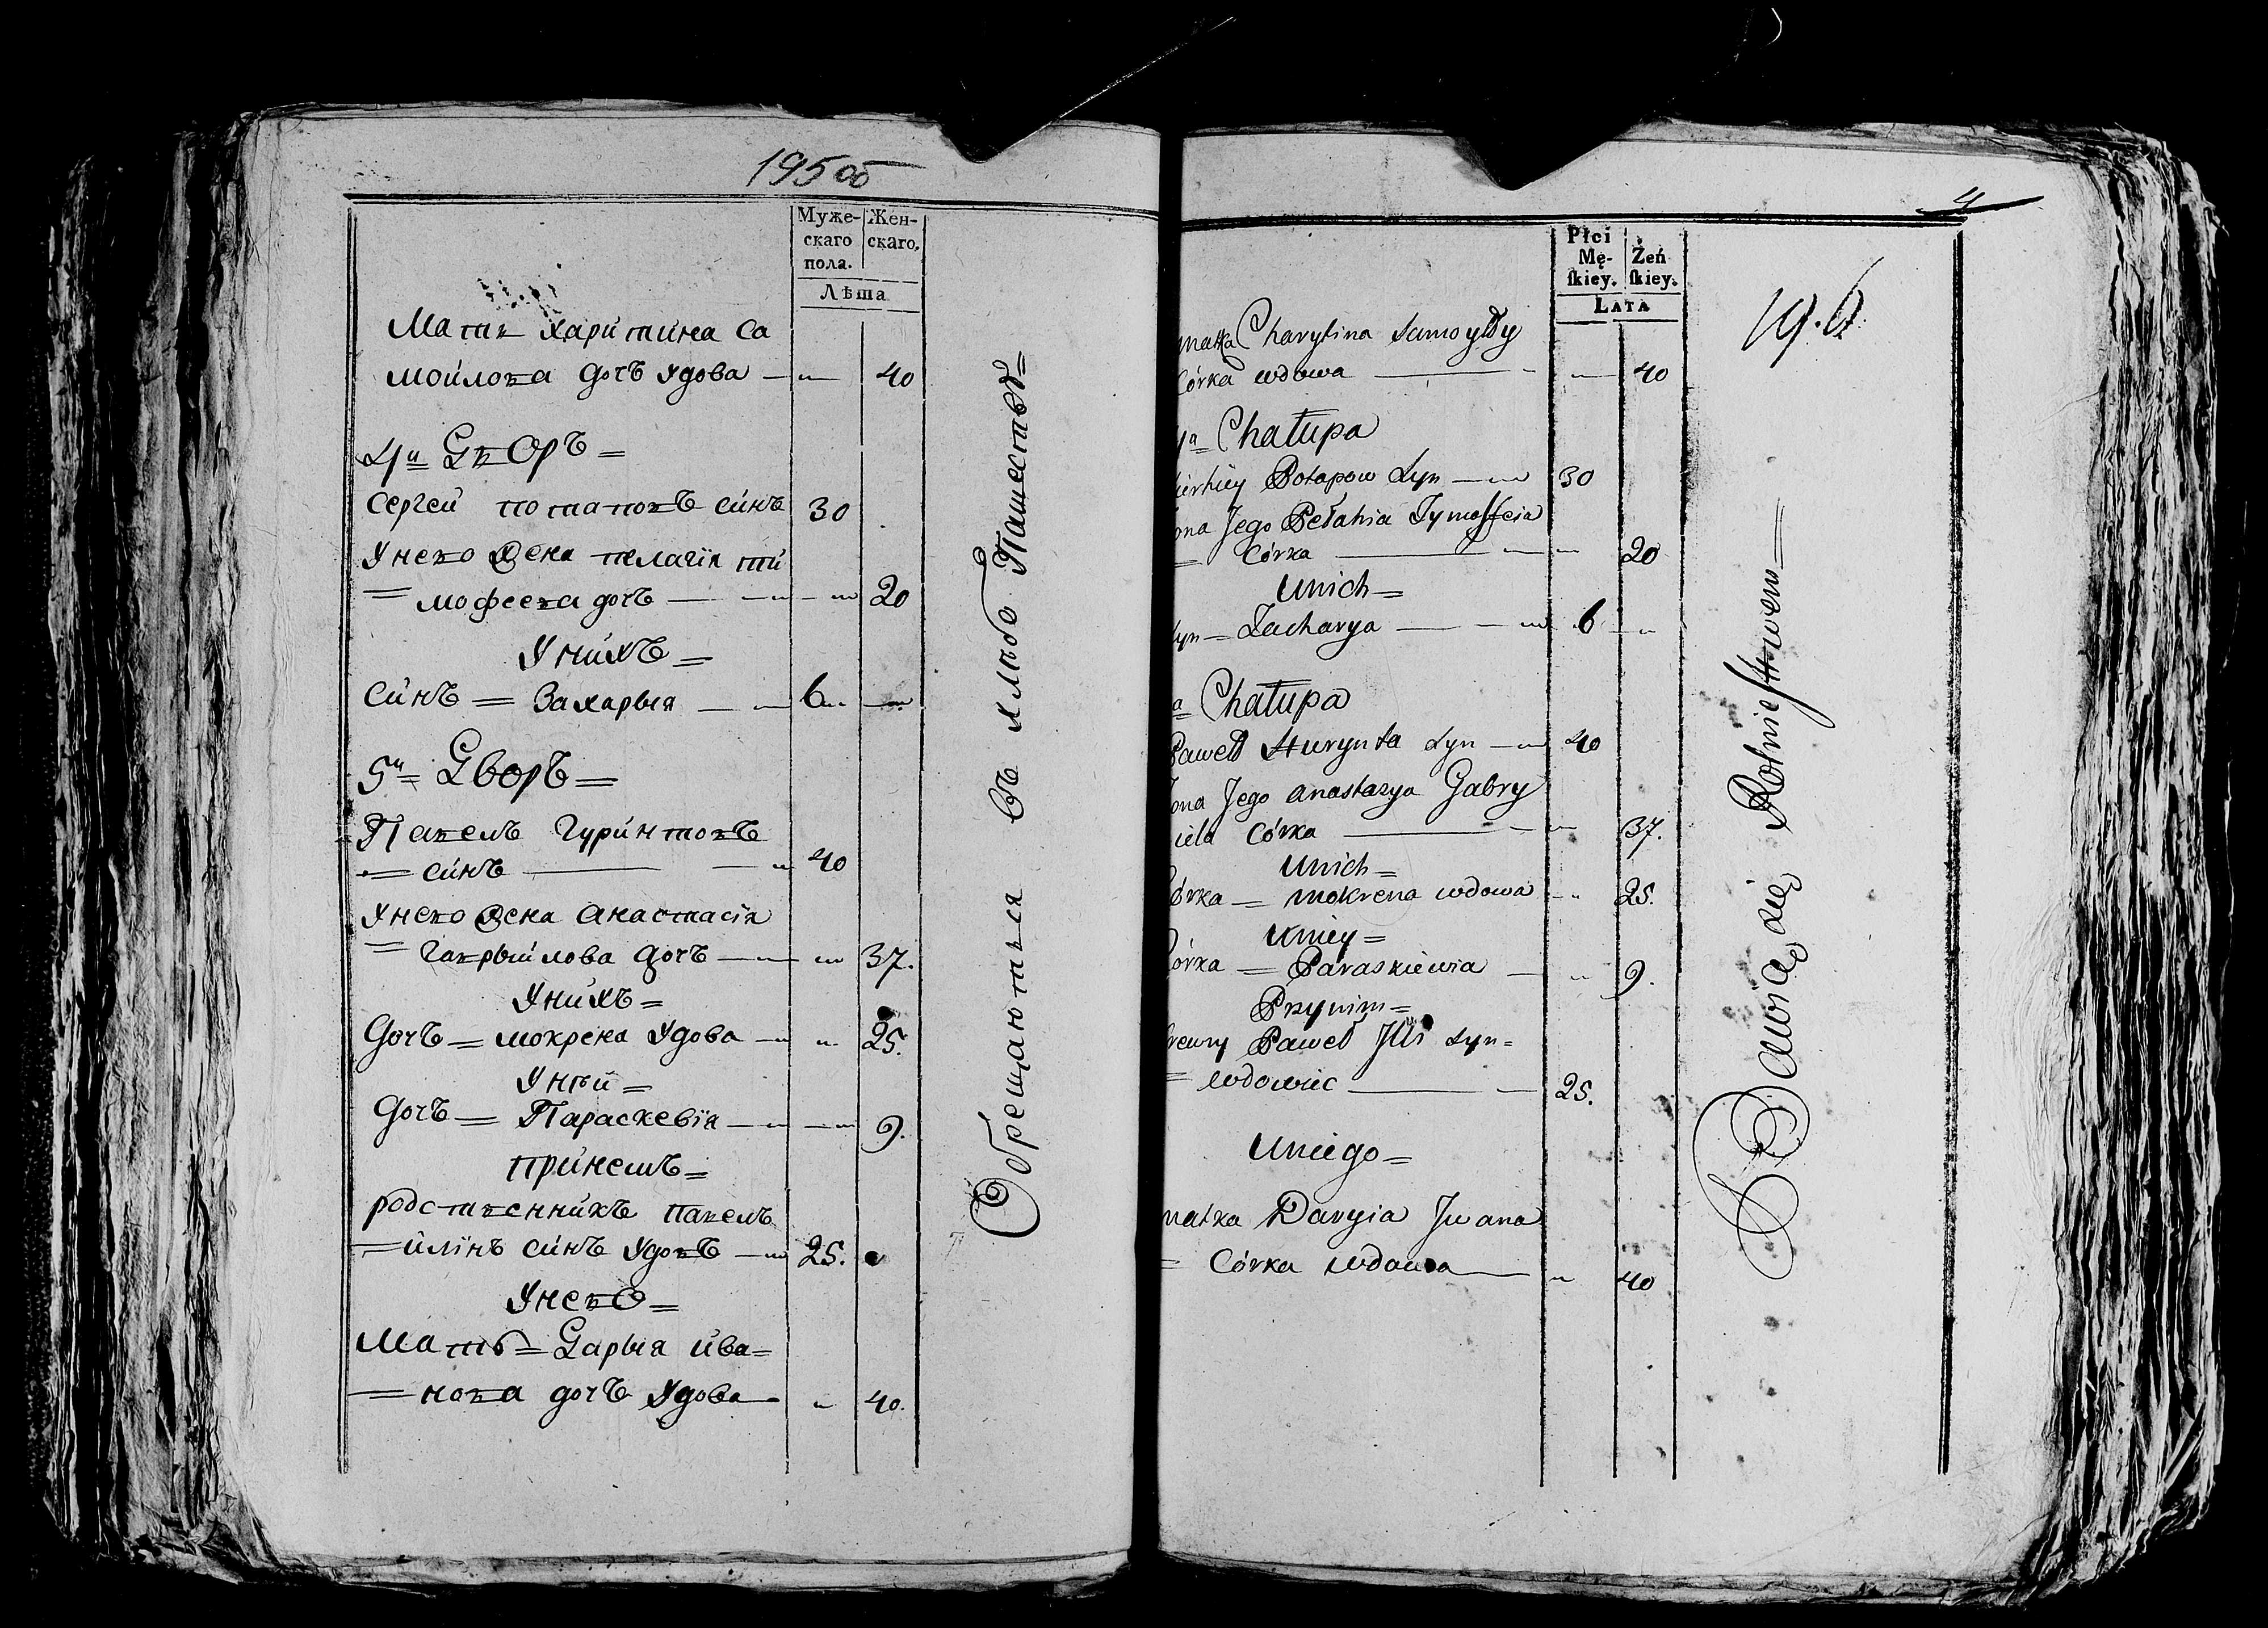 195 об
Муже-
скаго
пола.
Жен-
скаго.
Лѣта
Мать Харитина Са
мойлова дочъ удова 40
4й Дворъ
Сергей Потаповъ синъ 30
Унево жена Пелагія Ти
мофеева дочъ 20
Унихъ
Синъ Захарыя 6
5й Дворъ
Павелъ Гуринтовъ
синъ 40
Унево жена Анастасія
Гаврыилова дочъ 37.
Унихъ
Дочъ мокрена удова 25.
Унѣй
Дочъ Параскевія 9.
принемъ
родственникъ Павелъ
илінъ синъ удовъ 25.
Унево
Мать Дарыя ива=
нова дочъ удова 40.
Обрещаються въ хлѣбо Пашествѣ
4
196
Płci
Mę-
skiey.
Żeń
skiey.
LATA
matka Charytina Samoyły
Córka wdowa 40
4a Chałupa
Sierhiey Potapow Syn 30
ona Jego Pełahia Tymoffeia
Córka 20
Unich
Syn Zacharya 6
a Chałupa
Paweł Hurynta Syn 40
ona Jego Anastazya Gabry
iela Córka 37.
Unich
Córka Mokrena wdowa 25.
Uniey
Córka Paraskiewia 9.
Przynim
krewny Paweł Jlii Syn
wdowiec 25.
Uniego
matka Daryia Jwana
Córka wdowa 40
Bawią się Rolniestwem